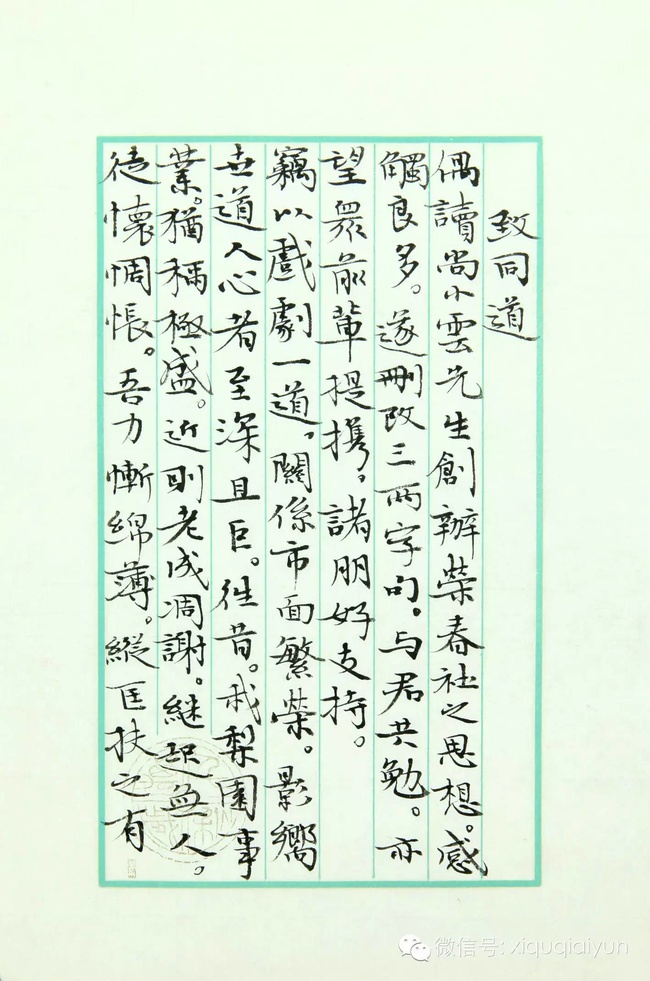 致同道
偶讀尚小雲先生創辦榮春社之思想。感
觸良多。遂刪改三两字句。与君共勉。亦
望衆前輩提携。諸朋好支持。
竊以戲劇一道。關係市面繁榮。影嚮
世道人心者至深且巨。徃昔。我梨園事
業。猶稱極盛。近則老成凋謝。継起無人。
徒懷惆悵。吾力慚綿薄。縱匡扶之有
微信号: xiquqiaiyun